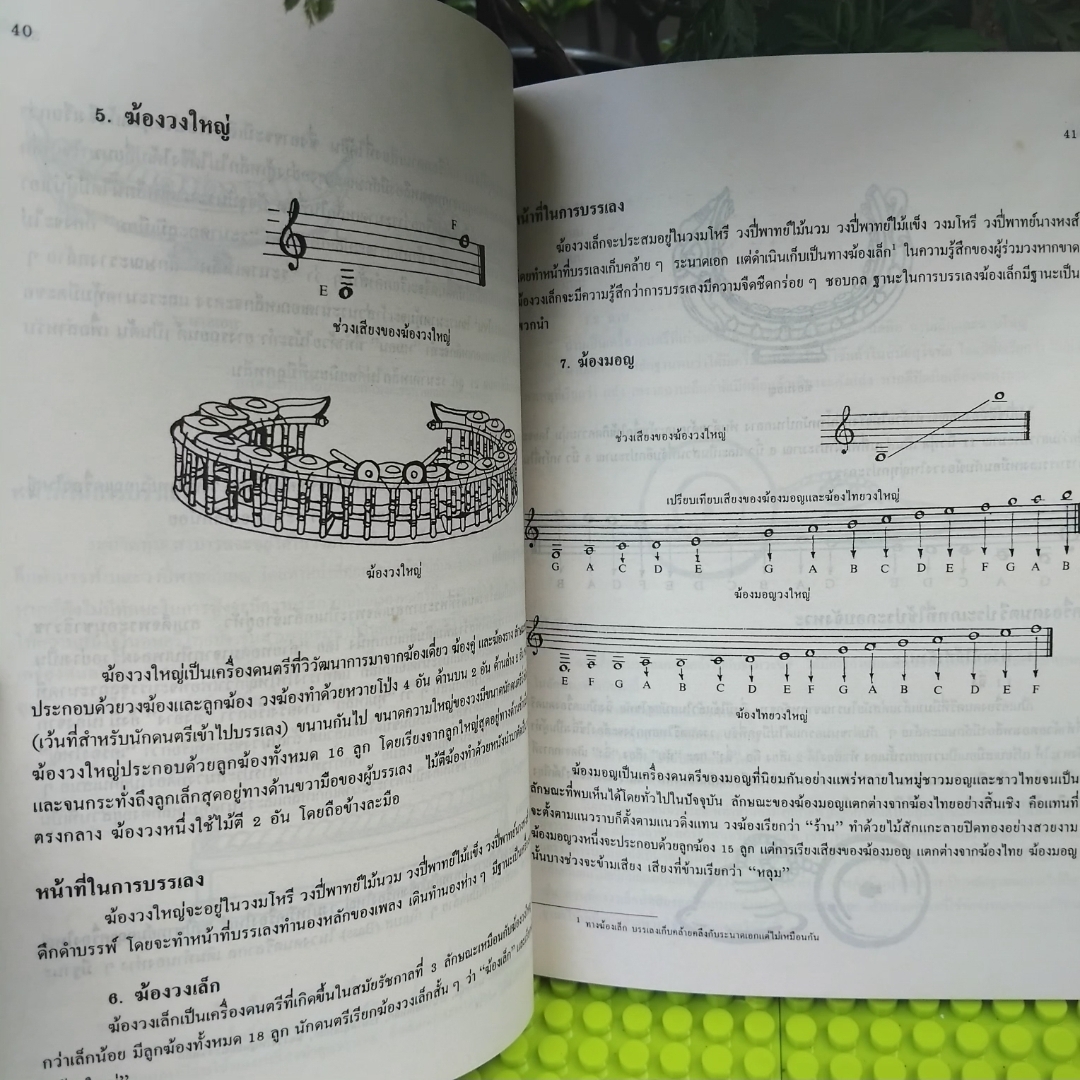 40
5. ฆ้องวงใหญ่
F
E
ช่วงเสียงของฆ้องวงใหญ่
ฆ้องวงใหญ่
ฆ้องวงใหญ่เป็นเครื่องดนตรีที่วิวัฒนาการมาจากฆ้องเดี่ยว ฆ้องคู่ และฆ้องราง
ประกอบด้วยวงฆ้องและลูกฆ้อง วงฆ้องทำด้วยหวายโป่ง 4 อัน ด้านบน 2 อัน ด้านล่าง 2
(เว้นที่สำหรับนักดนตรีเข้าไปบรรเลง) ขนานกันไป ขนาดความใหญ่ของวงมีขนาดนักดนตรี
ฆ้องวงใหญ่ประกอบด้วยลูกฆ้องทั้งหมด 16 ลูก โดยเรียงจากลูกใหญ่สุดอยู่ทางด้าน
และจนกระทั่งถึงลูกเล็กสุดอยู่ทางด้านขวามือของผู้บรรเลง ไม้ตีฆ้องทำด้วยหนัง
ตรงกลาง ฆ้องวงหนึ่งใช้ไม้ตี 2 อัน โดยถือข้างละมือ
หน้าที่ในการบรรเลง
ฆ้องวงใหญ่จะอยู่ในวงมโหรี วงปี่พาทย์ไม้นวม วงปี่พาทย์ไม้แข็ง วงปี่พาทย์
ดึกดำบรรพ์ โดยจะทำหน้าที่บรรเลงทำนองหลักของเพลง เดินทำนองห่าง ๆ มีฐานะเป็น
6. ฆ้องวงเล็ก
ฆ้องวงเล็กเป็นเครื่องดนตรีที่เกิดขึ้นในสมัยรัชกาลที่ 3 ลักษณะเหมือนกับฆ้องวง
กว่าเล็กน้อย มีลูกฆ้องทั้งหมด 18 ลูก นักดนตรีเรียกฆ้องวงเล็กสั้น ๆ ว่า "ฆ้องเล็ก"
41
หน้าที่ในการบรรเลง
ฆ้องวงเล็กจะประสมอยู่ในวงมโหรี วงปี่พาทย์ไม้นวม วงปี่พาทย์ไม้แข็ง วงมโหรี วงปี่พาทย์นางหงส์
โดยทำหน้าที่บรรเลงเก็บคล้าย ๆ ระนาดเอก แต่ดำเนินเก็บเป็นทางฆ้องเล็ก¹ ในความรู้สึกของผู้ร่วมวงหากขาด
ฆ้องวงเล็กจะมีความรู้สึกว่าการบรรเลงมีความจืดชืดกร่อย ๆ ชอบกล ฐานะในการบรรเลงฆ้องเล็กมีฐานะเป็น
พวกนำ
7. ฆ้องมอญ
ช่วงเสียงของฆ้องวงใหญ่
เปรียบเทียบเสียงของฆ้องมอญและฆ้องไทยวงใหญ่
G A C D E G A B C D E F G A B
ฆ้องมอญวงใหญ่
E F G A B C D E F G A B C D E F
ฆ้องไทยวงใหญ่
ฆ้องมอญเป็นเครื่องดนตรีของมอญที่นิยมกันอย่างแพร่หลายในหมู่ชาวมอญและชาวไทยจนเป็น
ลักษณะที่พบเห็นได้โดยทั่วไปในปัจจุบัน ลักษณะของฆ้องมอญแตกต่างจากฆ้องไทยอย่างสิ้นเชิง คือแทนที่
จะตั้งตามแนวราบก็ตั้งตามแนวดิ่งแทน วงฆ้องเรียกว่า "ร้าน" ทำด้วยไม้สักแกะลายปิดทองอย่างสวยงาม
ฆ้องมอญวงหนึ่งจะประกอบด้วยลูกฆ้อง 15 ลูก แต่การเรียงเสียงของฆ้องมอญ แตกต่างจากฆ้องไทย ฆ้องมอญ
นั้นบางช่วงจะข้ามเสียง เสียงที่ข้ามเรียกว่า "หลุม"
¹ ทางฆ้องเล็ก บรรเลงเก็บคล้ายคลึงกับระนาดเอกแต่ไม่เหมือนกัน